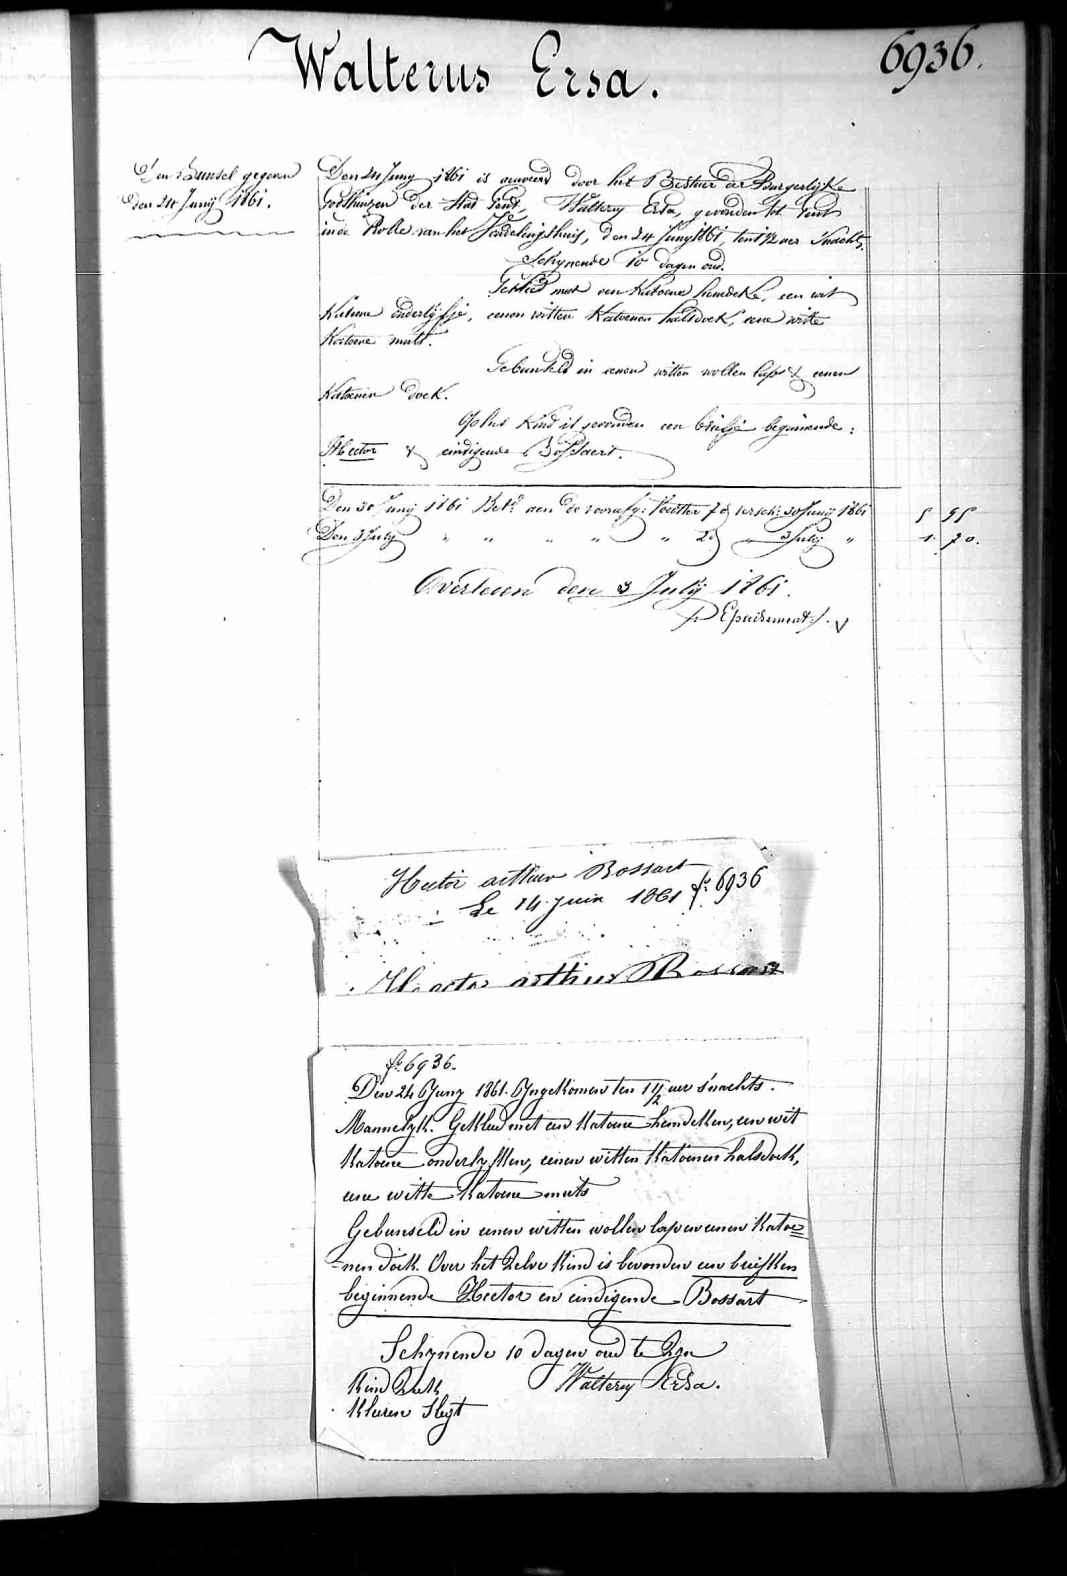 Walterus Ersa.
6936.
Den Bunsel gegeven
den 24 Junij 1861.
Den 24 Juny 1861 is aenveerd door het Bestier der Burgerlyke
Godshuizen der Stad Gent, Waltery Ersa, gevonden tot Gent
in de Rolle van het Vondelingshuis, den 24 Juny 1861, ten 1 1/2 uer s'nachts.
Schynende 10 dagen oud.
Gekleed met een Katoene hemdeke, een wit
Katoene onderlyfje, eenen witten Katoenen halsdoek, eene witte
Katoene muts.
Gebunseld in eenen witten wollen lap & eenen
Katoenen doek.
Op het Kind is gevonden een briefje beginnende:
Hector & eindigende Bossaert.
Den 30 Junij 1861 Bet. aen de voorafg: Voedster 7 d versch: 30 Junij 1861 5 95
Den 3 July " " " " " 2 d 3 July " 1. 70.
Overleden den 3 July 1861.
Epuisement
Hector arthur Bossart
Le 14 juin 1861 f. 6936
Hector arthur Bossart
f. 6936.
Den 24 Juny 1861. Yngekomen ten 1 1/2 uer s'nachts.
Mannelyk. Gekleed met een Katoene hemdeken, een wit
Katoene onderlyfken, eenen witten Katoenen halsdoek,
eene witte Katoene muts
Gebunseld in eenen witten wollen lap en eenen Katoe=
=nen doek. Over het Zelve Kind is bevonden een briefken
beginnende Hector en eindigende Bossart
Schynende 10 dagen oud te Zyn
Kind Ziek Waltery Ersa.
Kleeren Slegt